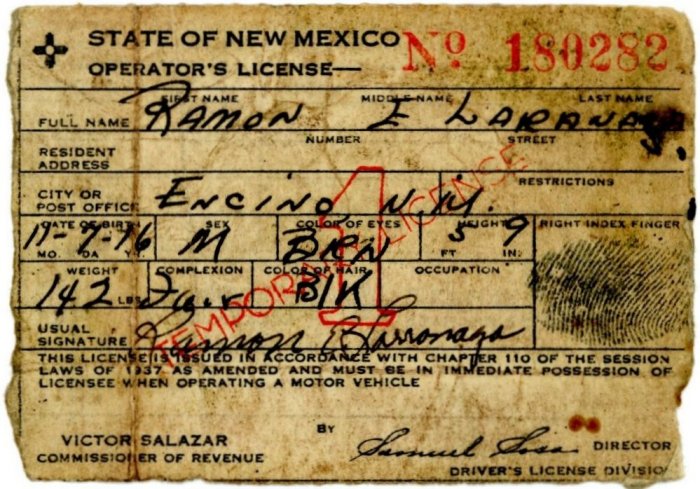 STATE OF NEW MEXICO Nº 180282
OPERATOR'S LICENSE—
FIRST NAME MIDDLE NAME LAST NAME
FULL NAME RAMON E
NUMBER STREET
RESIDENT ADDRESS
CITY OR POST OFFICE ENCINO N.M. RESTRICTIONS
DATE OF BIRTH SEX COLOR OF EYES HEIGHT RIGHT INDEX FINGER
M BRN 5 9
MO. DA YR. FT IN.
WEIGHT COMPLEXION COLOR OF HAIR OCCUPATION
142 LBS Fair Blk
TEMPORARY LICENSE
1
USUAL SIGNATURE Ramon Larranaga
THIS LICENSE IS ISSUED IN ACCORDANCE WITH CHAPTER 110 OF THE SESSION
LAWS OF 1937 AS AMENDED AND MUST BE IN IMMEDIATE POSSESSION OF
LICENSEE WHEN OPERATING A MOTOR VEHICLE
BY
VICTOR SALAZAR Samuel Sosa DIRECTOR
COMMISSIONER OF REVENUE DRIVER'S LICENSE DIVISION